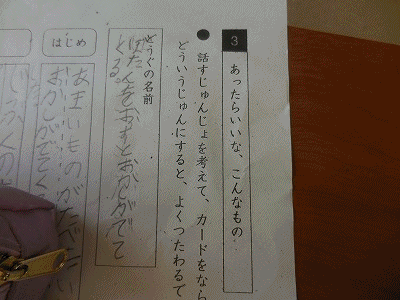 3
あったらいいな、こんなもの
● 話すじゅんじょを考えて、カードをなら
どういうじゅんにすると、よくつたわるで
どうぐの名前
ぼたんをおすとおかしがでて
くる。
はじめ
あまいものがたべたい
おかしがでてく